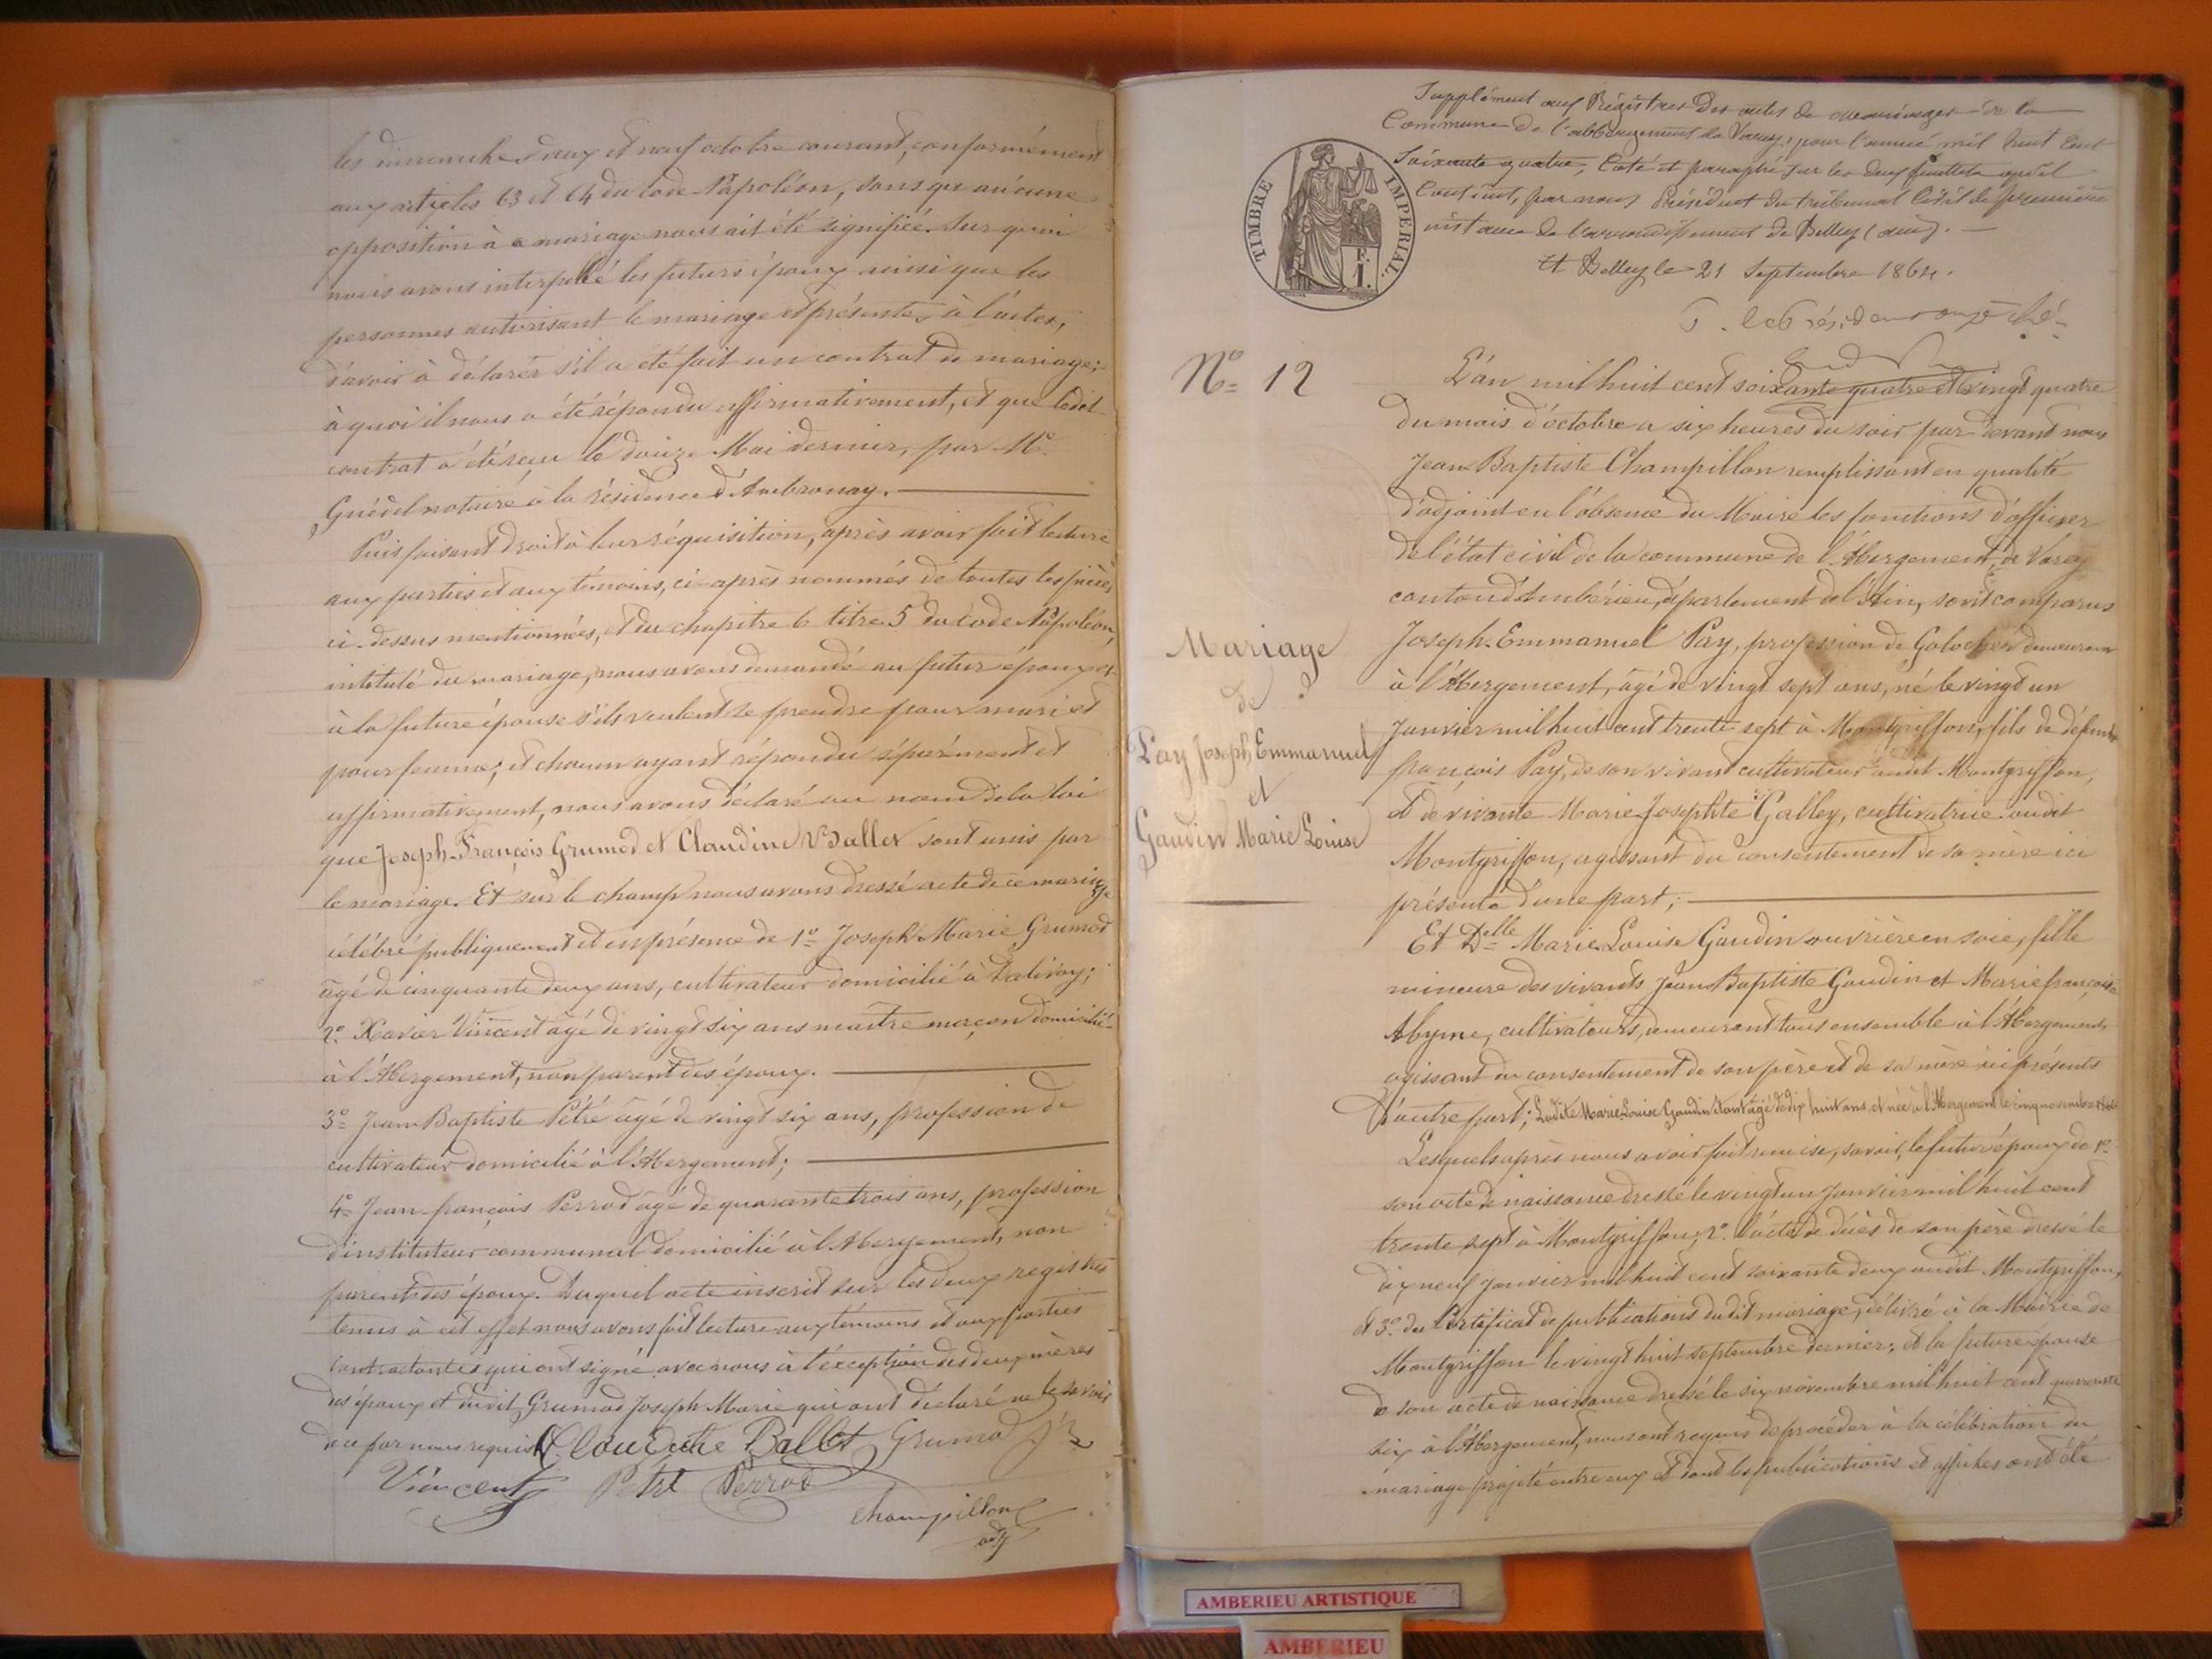 les dimanches deux et neuf octobre courant, conformément
aux articles 63 et 64 du code Napoléon, sans qu'aucune
opposition à ce mariage nous ait été signifiée. Sur quoi
nous avons interpellé les futurs époux ainsi que les
personnes autorisant le mariage et présentes à l'acte,
d'avoir à déclarer s'il a été fait un contrat de mariage;
à quoi il nous a été répondu affirmativement, et que ledit
contrat a été reçu le douze Mai dernier, par Me
Guédel notaire à la résidence d'Ambronay.
Puis faisant droit à leur réquisition, après avoir fait lecture
aux parties et aux témoins, ci-après nommés de toutes les pièces
ci-dessus mentionnées, et du chapitre 6 titre 5 du code Napoléon,
intitulé du mariage, nous avons demandé au futur époux et
à la future épouse s'ils veulent se prendre pour mari et
pour femme; et chacun ayant répondu séparément et
affirmativement, nous avons déclaré au nom de la loi
que Joseph-François Grumod et Claudine Ballet sont unis par
le mariage. Et sur le champ nous avons dressé acte de ce mariage
célébré publiquement et en présence de 1º Joseph-Marie Grumod
âgé de cinquante deux ans, cultivateur domicilié à
2º Xavier Vincent âgé de vingt six ans maître maçon domicilié
à l'Abergement, non parent des époux.
3º Jean Baptiste Pétré âgé de vingt six ans, profession de
cultivateur domicilié à l'Abergement;
4º Jean-françois Perrod âgé de quarante trois ans, profession
d'instituteur communal domicilié à l'Abergement, non
parent des époux. Duquel acte inscrit sur les deux registres
tenus à cet effet nous avons fait lecture aux témoins et aux parties
contractantes qui ont signé avec nous à l'exception des deux mères
des époux et dudit Grumod Joseph Marie qui ont déclaré ne le savoir
de ce par nous requis. Claudine Ballet Grumod
Vincent Petré Perrod
Champillon
adj
Supplément aux Régistres des actes de mariages de la
Commune de l'abbergement de Varey, pour l'année mil huit cent
Soixante quatre, Coté et paraphé sur les deux feuillets qu'il
Contient, par nous Président du tribunal Civil de première
instance de l'arrondissement de Belley (ain).
A Belley le 21 Septembre 1864.
TIMBRE IMPERIAL.
F.
1.
Nº 12
L'an mil huit cent soixante quatre et le vingt quatre
du mois d'octobre a six heures du soir par devant nous
Jean-Baptiste Champillon remplissant en qualité
d'adjoint en l'absence du Maire les fonctions d'officier
de l'état civil de la commune de l'Abergement de Varey
canton d'Ambérieu, département de l'Ain, sont comparus
Mariage
de
Pay Joseph Emmanuel
et
Gaudin Marie Louise
Joseph-Emmanuel Pay, profession de Galocher demeurant
à l'Abergement, âgé de vingt sept ans, né le vingt un
Janvier mil huit cent trente sept à Montgriffon, fils de défunt
françois Pay, de son vivant cultivateur audit Montgriffon,
et de vivante Marie-Josephte Galley, cultivatrice audit
Montgriffon, agissant du consentement de sa mère ici
présente d'une part;
Et Delle Marie-Louise Gaudin ouvrière en soie, fille
mineure des vivants Jean-Baptiste Gaudin et Marie françoise
Abyme, cultivateurs, demeurant tous ensemble à l'Abergement
agissant du consentement de son père et de sa mère ici présents
d'autre part; Ladite Marie Louise Gaudin étant âgé de dix huit ans et née à l'Abergement le cinq novembre 1846
Lesquels après nous avoir fait remise, savoir, le futur époux de 1º
son acte de naissance dressé le vingt un Janvier mil huit cent
trente sept à Montgriffon, 2º l'acte de décès de son père dressé le
dix neuf Janvier mil huit cent soixante deux audit Montgriffon,
et 3º du Certificat de publications dudit mariage, délivré à la Mairie de
Montgriffon le vingt huit septembre dernier; et la future épouse
de son acte de naissance dressé le six novembre mil huit cent quarante
six à l'Abergement, nous ont requis de procéder à la célébration du
mariage projeté entre eux et dont les publications et affiches ont été
AMBERIEU ARTISTIQUE
AMBERIEU